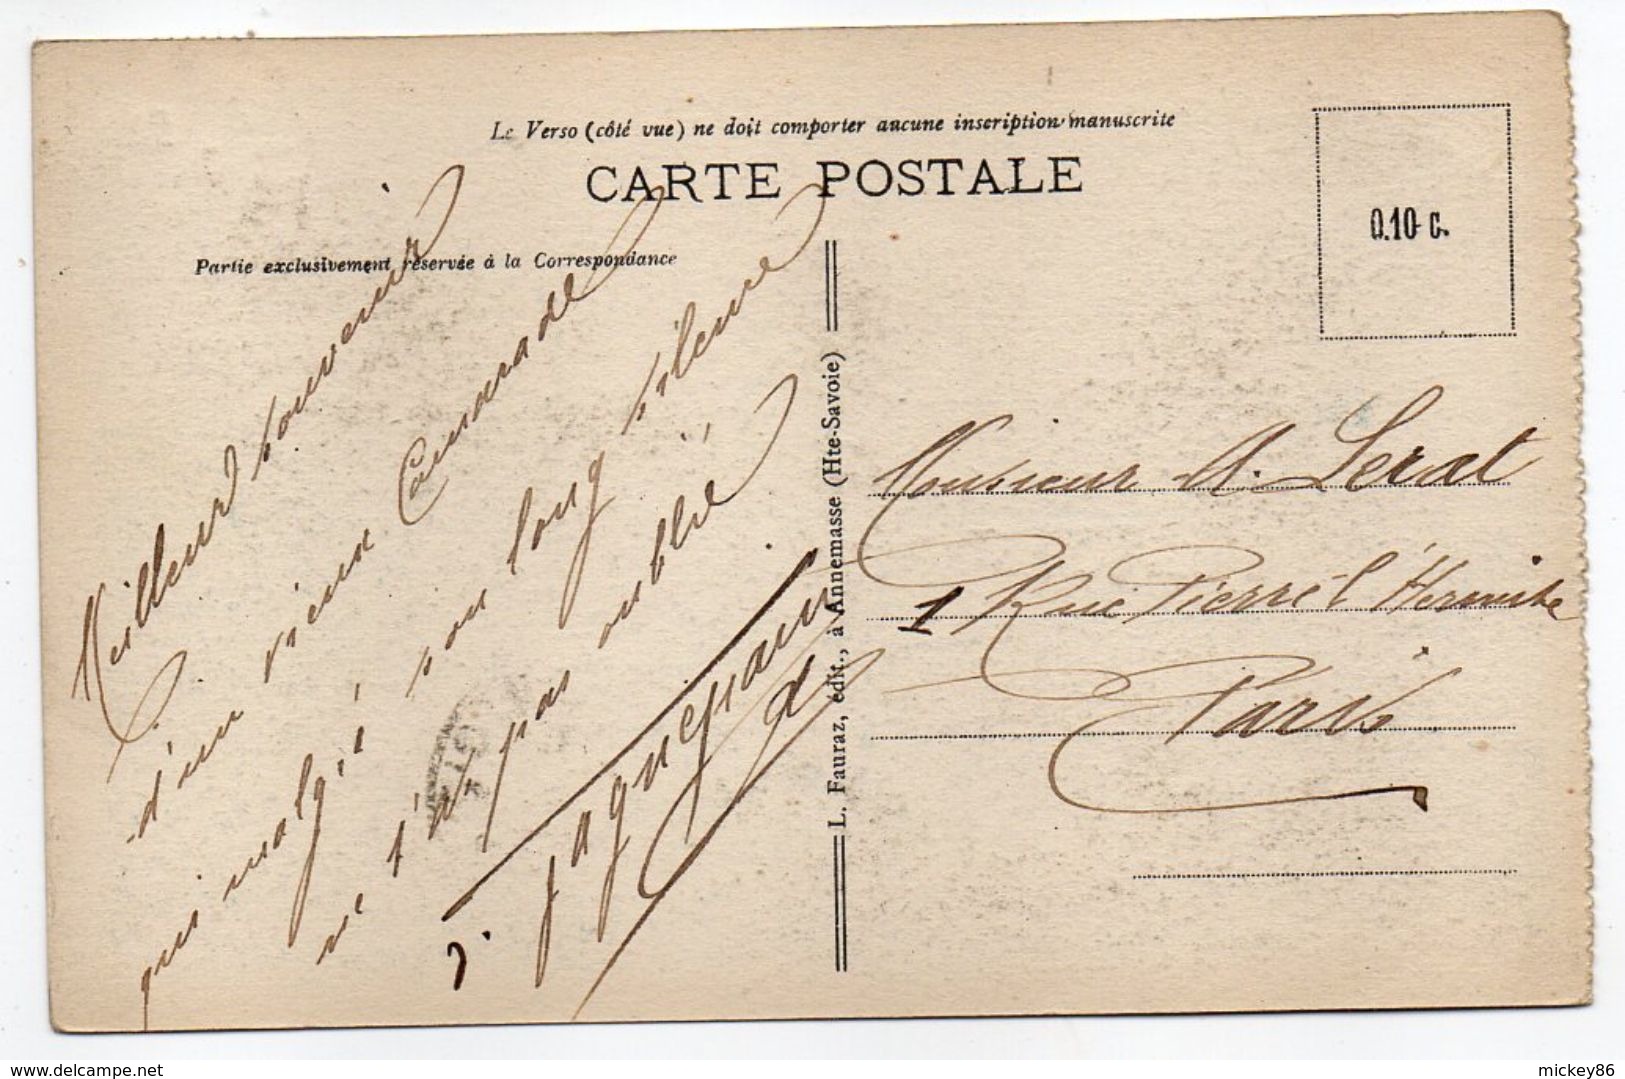 Le Verso (côté vue) ne doit comporter aucune inscription manuscrite
CARTE POSTALE
Partie exclusivement réservée à la Correspondance
0.10 c.
Meilleurs souvenirs
d'un vieux Camarade
qui malgré son long silence
ne t'a pas oublié
J. Jagnepain
L. Fauraz, édit., à Annemasse (Hte-Savoie)
Monsieur A. Lerat
1 Rue Pierre l'Hermite
Paris
delcampe.net
mickey86